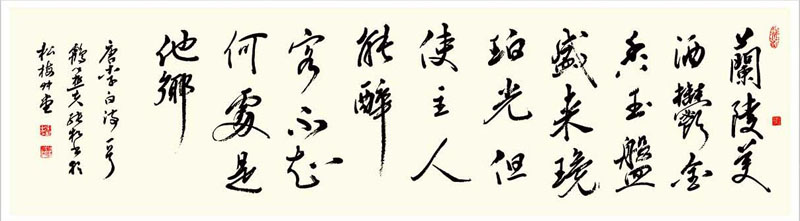 蘭陵美
酒鬱金
香玉盤
盛来琥
珀光但
使主人
能醉
客不知
何處是
他鄉
唐李白詩一首
鶴 书於
松梅艸堂